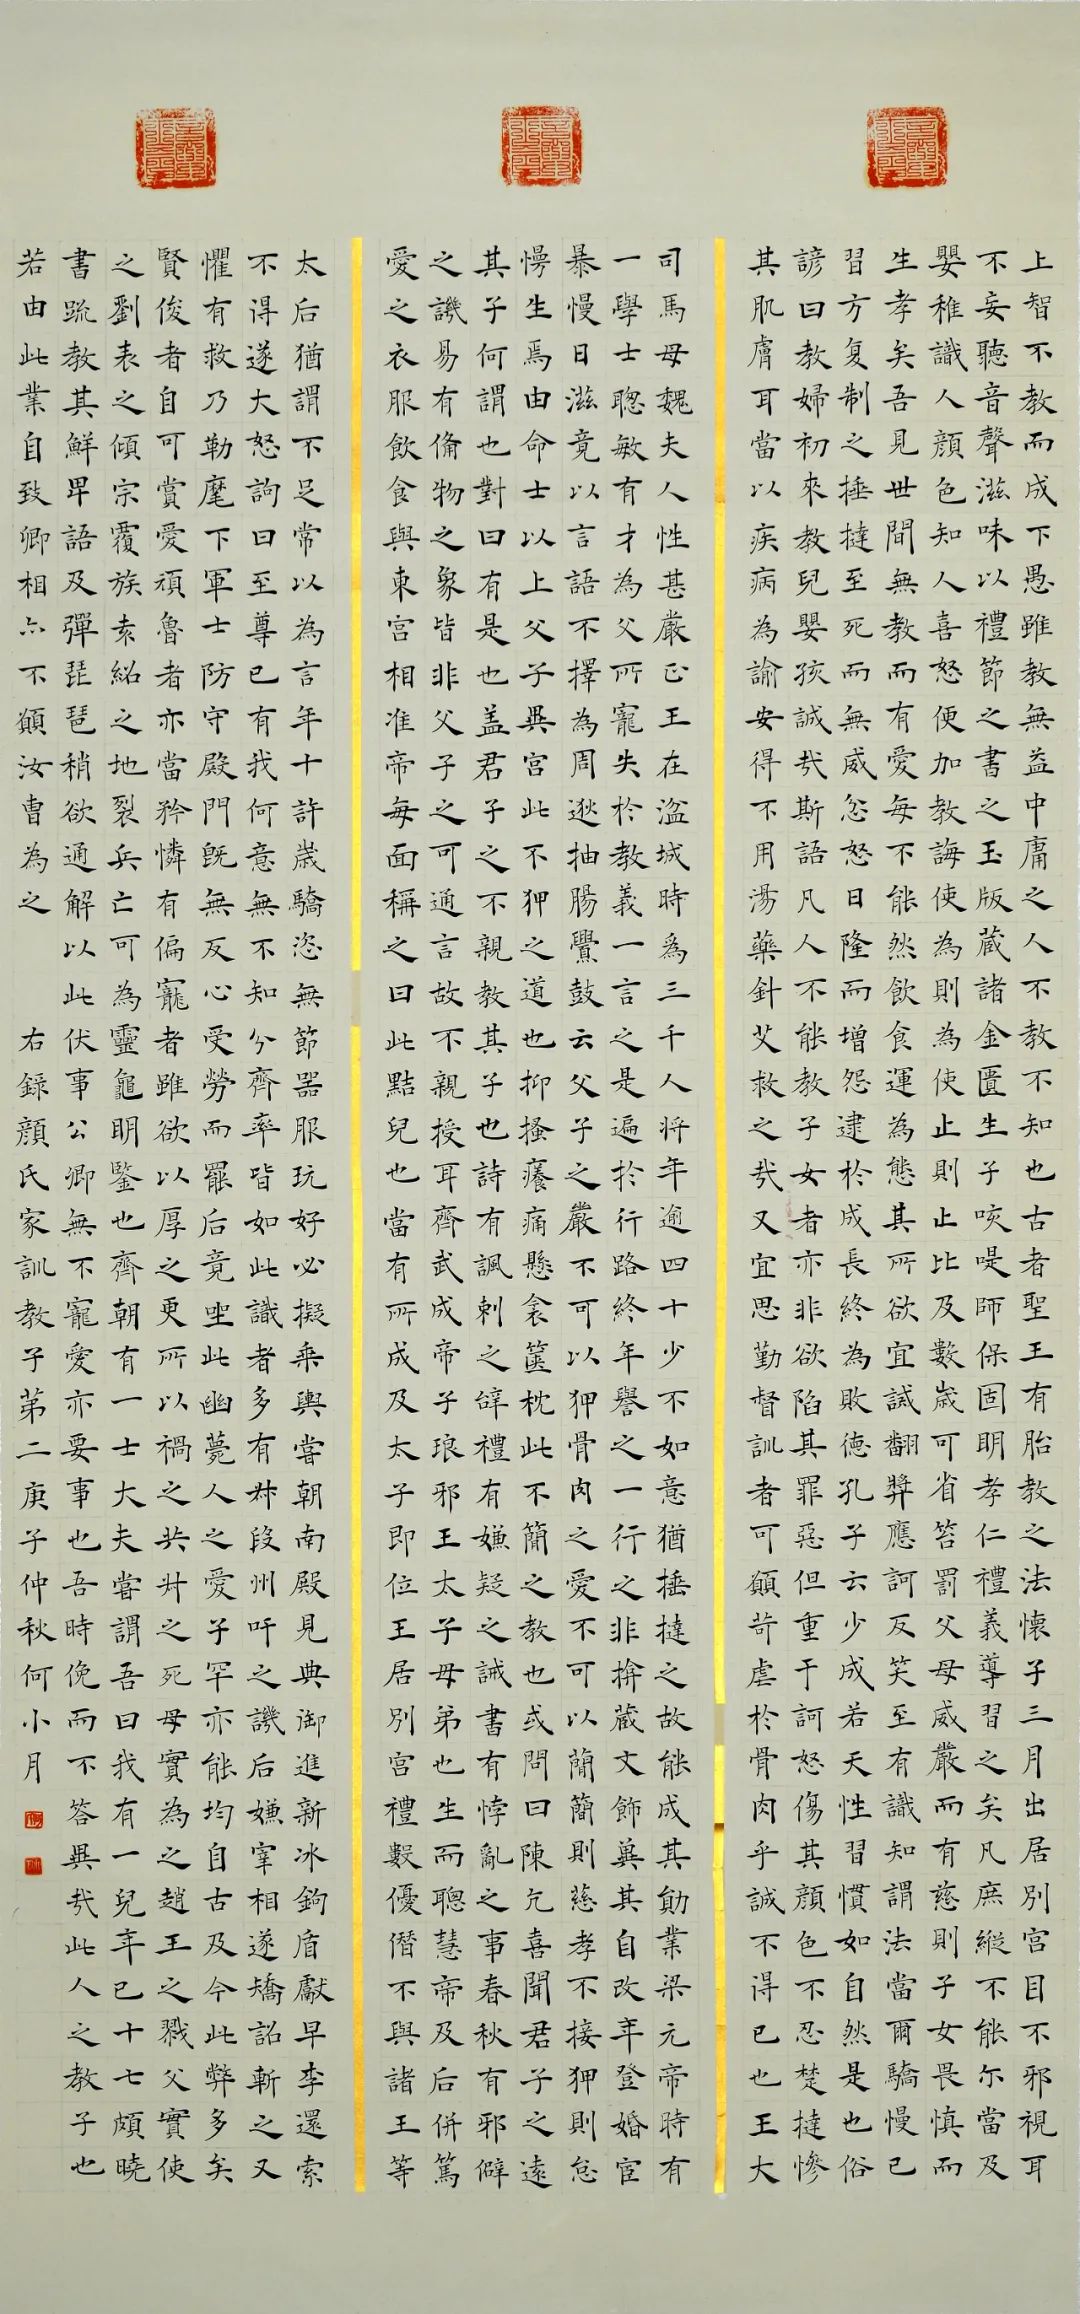 上智不教而成下愚雖教無益中庸之人不教不知也古者聖王有胎教之法懷子三月出居別宮目不邪視耳
不妄聽音聲滋味以禮節之書之玉版藏諸金匱生子咳㖷師保固明孝仁禮義導習之矣凡庶縱不能尔當及
嬰稚識人顏色知人喜怒便加教誨使為則為使止則止比及數歲可省笞罰父母威嚴而有慈則子女畏慎而
生孝矣吾見世間無教而有愛每不能然飲食運為態其所欲宜誡翻獎應訶反笑至有識知謂法當爾驕慢已
習方复制之捶撻至死而無威忿怒日隆而增怨逮於成長終為敗德孔子云少成若天性習慣如自然是也俗
諺曰教婦初來教兒嬰孩誠哉斯語凡人不能教子女者亦非欲陷其罪惡但重于訶怒傷其顏色不忍楚撻慘
其肌膚耳當以疾病為諭安得不用湯藥針艾救之哉又宜思勤督訓者可願苛虐於骨肉乎誠不得已也王大
司馬母魏夫人性甚嚴正王在湓城時為三千人將年逾四十少不如意猶捶撻之故能成其勛業梁元帝時有
一學士聰敏有才為父所寵失於教義一言之是遍於行路終年譽之一行之非揜藏文飾冀其自改年登婚宦
暴慢日滋竟以言語不擇為周逖抽腸釁鼓云父子之嚴不可以狎骨肉之愛不可以簡簡則慈孝不接狎則怠
慢生焉由命士以上父子異宮此不狎之道也抑搔癢痛懸衾篋枕此不簡之教也或問曰陳亢喜聞君子之遠
其子何謂也對曰有是也蓋君子之不親教其子也詩有諷刺之辭禮有嫌疑之誡書有悖亂之事春秋有邪僻
之譏易有備物之象皆非父子之可通言故不親授耳齊武成帝子琅邪王太子母弟也生而聰慧帝及后併篤
愛之衣服飲食與東宮相准帝每面稱之曰此黠兒也當有所成及太子即位王居別宮禮數優僭不與諸王等
太后猶謂不足常以為言年十許歲驕恣無節器服玩好必擬乘輿嘗朝南殿見典御進新冰鉤盾獻早李還索
不得遂大怒訽曰至尊已有我何意無不知分齊率皆如此識者多有叔段州吁之譏后嫌宰相遂矯詔斬之又
懼有救乃勒麾下軍士防守殿門既無反心受勞而罷后竟坐此幽薨人之愛子罕亦能均自古及今此弊多矣
賢俊者自可賞愛頑魯者亦當矜憐有偏寵者雖欲以厚之更所以禍之共叔之死母實為之趙王之戮父實使
之劉表之傾宗覆族袁紹之地裂兵亡可為靈龜明鑒也齊朝有一士大夫嘗謂吾曰我有一兒年已十七頗曉
書疏教其鮮卑語及彈琵琶稍欲通解以此伏事公卿無不寵愛亦要事也吾時俛而不答異哉此人之教子也
若由此業自致卿相亦不願汝曹為之 右錄顏氏家訓教子第二庚子仲秋何小月